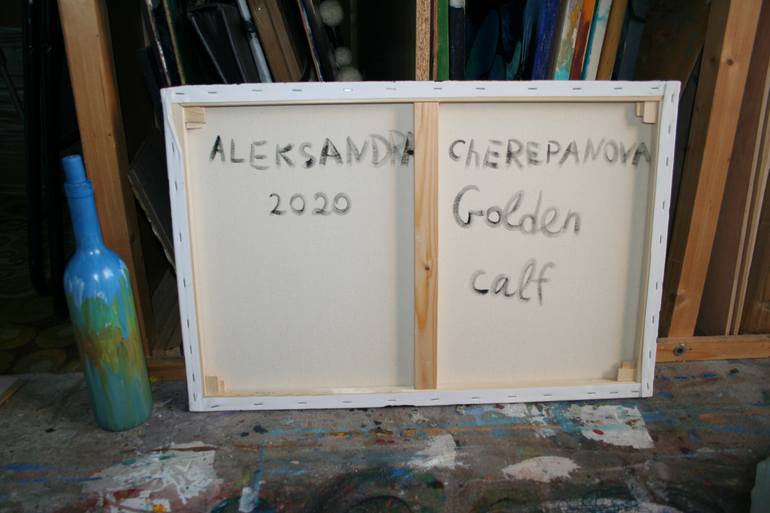 ALEKSANDRA CHEREPANOVA
2020
Golden
calf